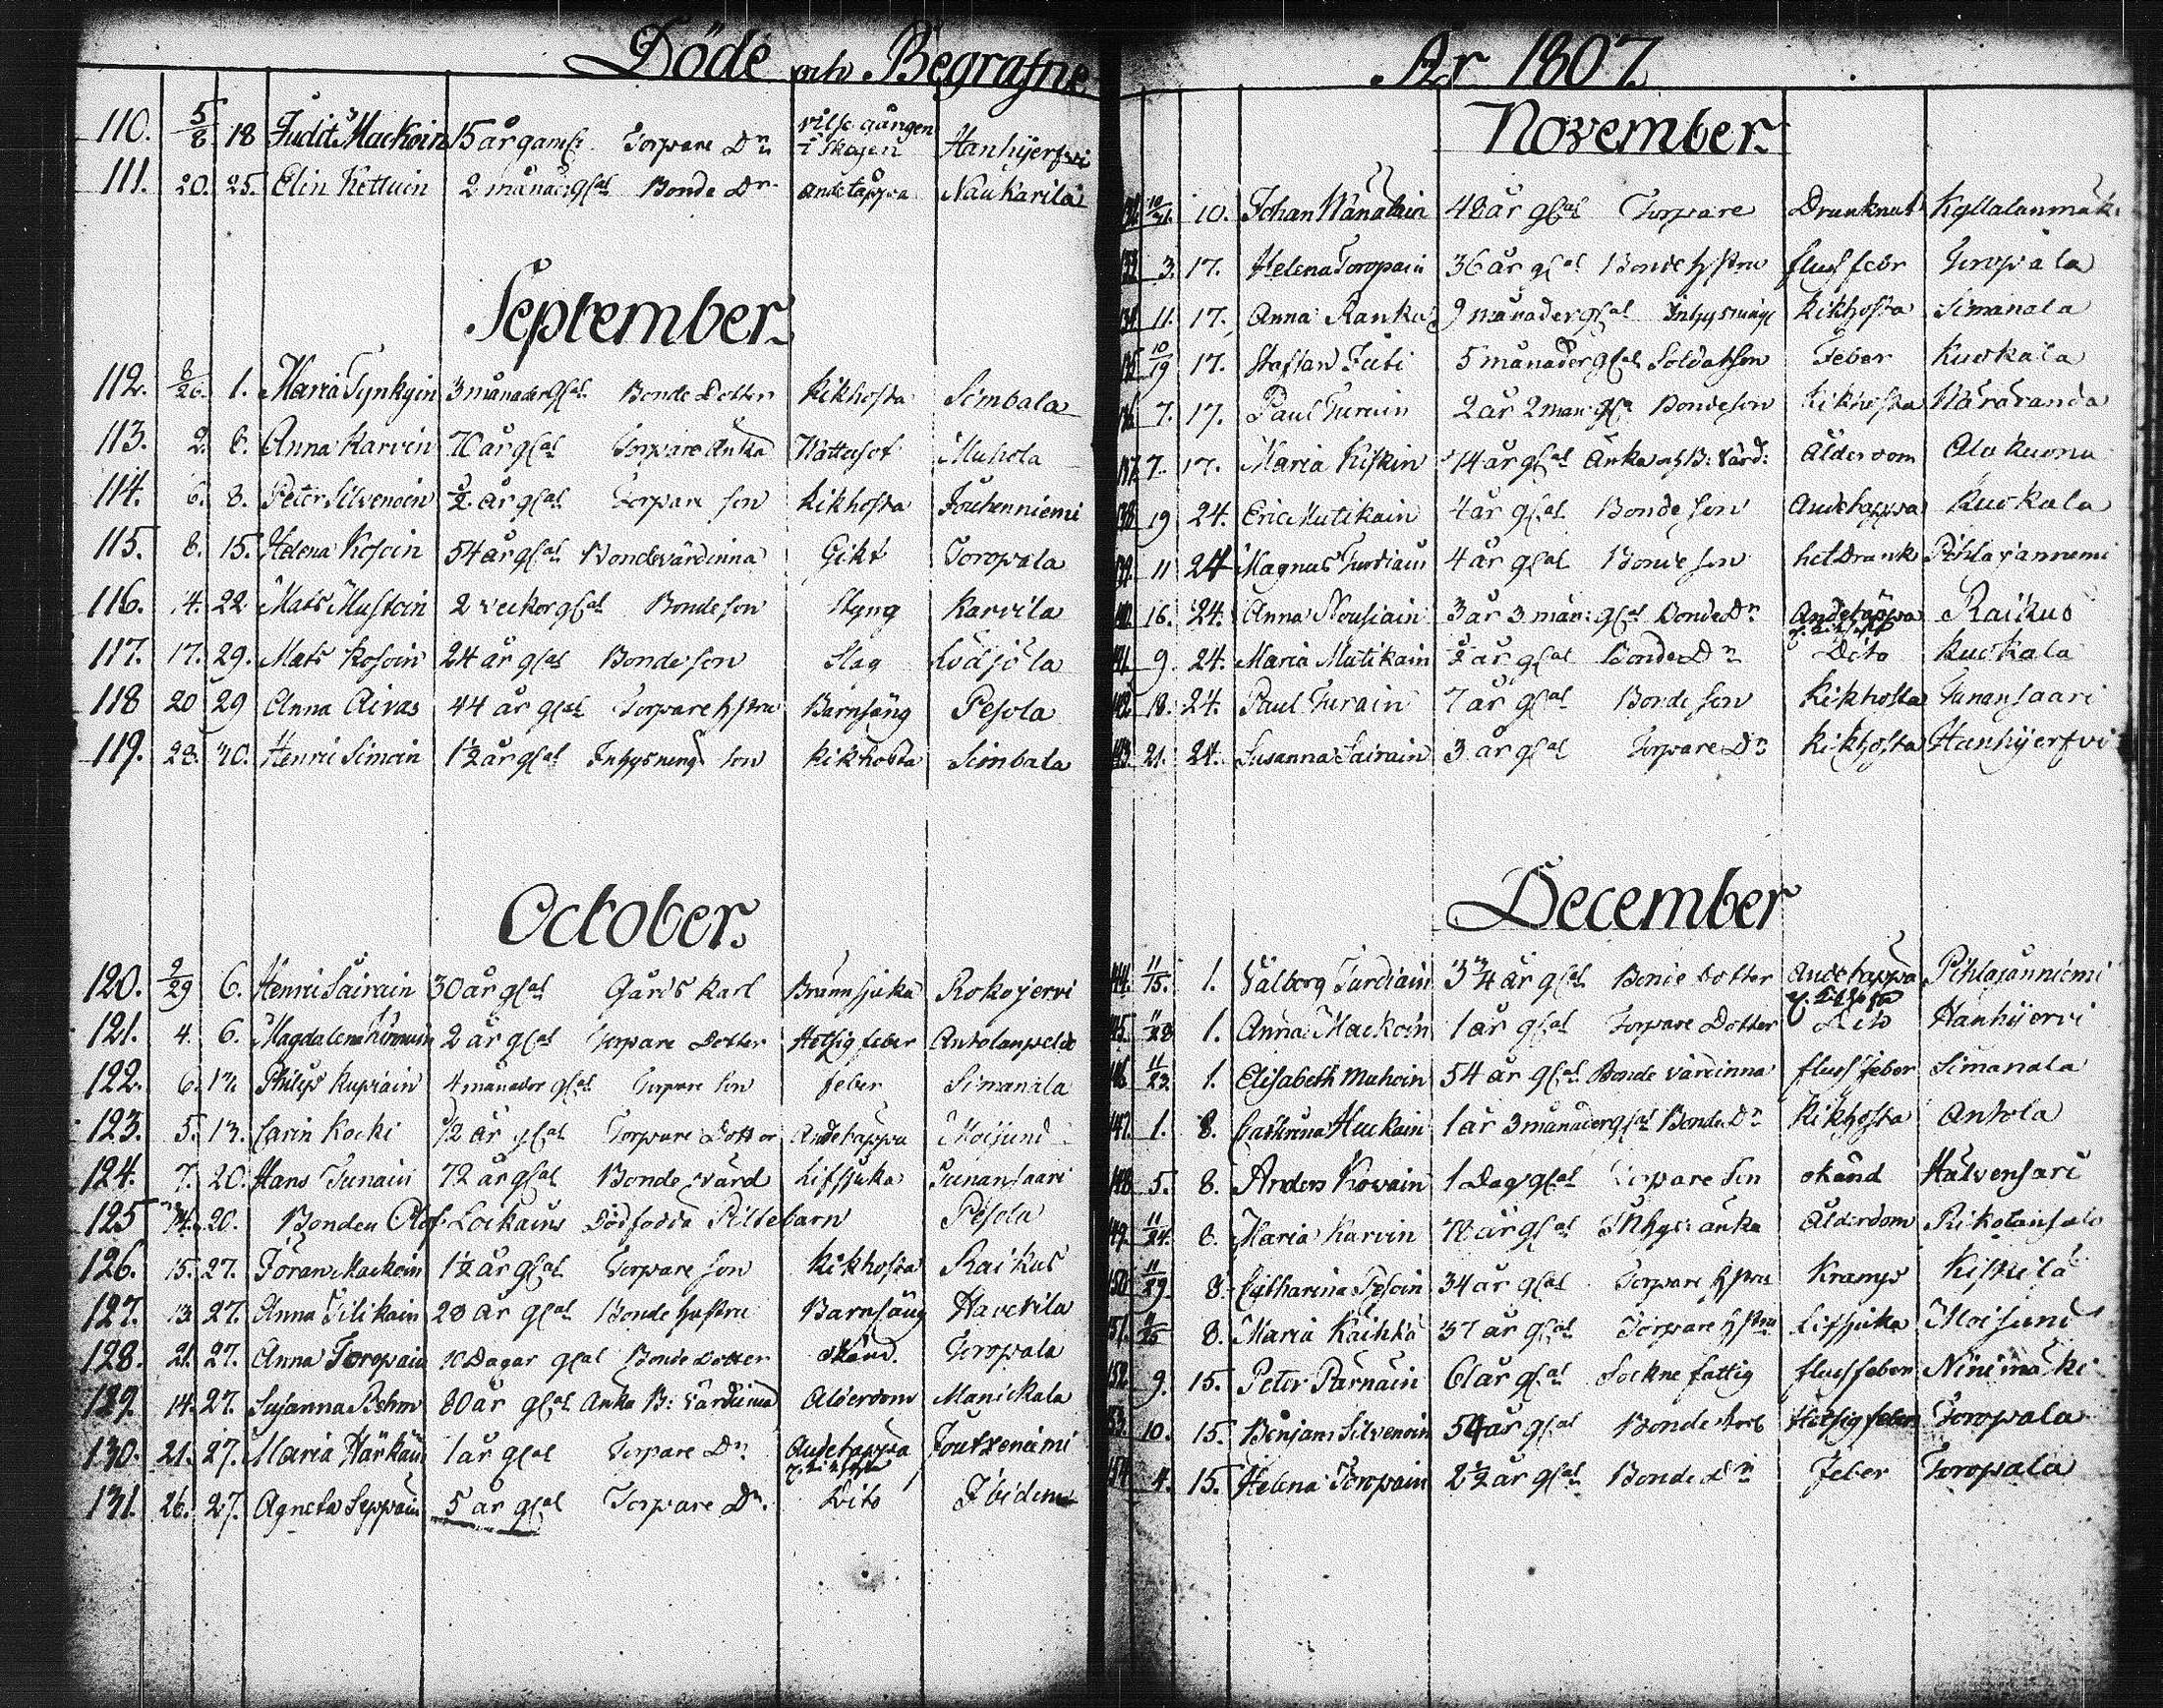 Döde och Begrafne
110. 5/8 18 Judit Mackoin 15 år gamf: Torpare Dr vilse gången i skogen Hanhijerfvi
111. 20. 25. Elin Kettuin 2 månad: glal Bonde Dr andetäppa Naukarila
September.
112. 8/26. 1. Maria Tynkyin 3 månader glal Bonde Dotter kikhosta Simbala
113. 2. 6. Anna Karvin 70 år glal Torpare Änka Wattusot Muhola
114. 6. 8. Peter Silvenoin 1/2 år glal Torpare son kikhosta Jouhenniemi
115. 8. 15. Helena Kosoin 54 år glal Bondevärdinna Gikt Toropala
116. 14. 22. Mats Mustoin 2 veckor glal Bonde son Styng Karvila
117. 17. 29. Mats Kosoin 24 år glal Bonde son Slag
118 20 29 Anna Aivas 44 år glal Torpare hstru Barnsäng Pesola
119. 28. 30. Henric Simoin 1 1/2 år glal Inhysning son kikhosta Simbala
October.
120. 9/29 6. Henric Sairain 30 år glal Gårds karl Brännsjuka Rokojervi
121. 4. 6. Magdalena 2 år glal Torpare Dotter Hetsig feber
122. 6. 13. Philip Kupiain 4 månader glal Torpare son feber Simanala
123. 5. 13. Carin Kocki 1/2 år glal Torpare Dotter Andetäppa Moisund
124. 7. 20. Hans Tunain 72 år glal Bonde värd Lifsjuka Tunansaari
125 14. 20. Bonden Olof Loikains Dödfödda Piltebarn Pesola
126. 15. 27. Jöran Mackoin 1 1/2 år glal Torpare son kikhosta Raikus
127. 13. 27. Anna Tilikain 28 år glal Bonde hustru Barnsäng Hauckila
128. 21. 27. Anna Toropain 10 Dagar glal Bonde dotter okänd. Toropala
129. 14. 27. Susanna Behm 80 år glal Änka B: värdinna Ålderdom Manickala
130. 21. 27. Maria Härkäin 1 år glal Torpare Dr Andetäppa Joutxeniemi
131. 26. 27. Agneta Seppäin 5 år glal Torpare Dr. Dito Ibidem
År 1807.
November.
132. 10/31. 10. Johan Wänäläin 48 år glal Torpare Drunknat Kyllälänmäki
133. 3. 17. Helena Toropain 36 år glal Bonde hstru fluss febr Toropala
134. 11. 17. Anna Rankin 9 månader glal Inhysning kikhosta Simanala
135. 10/19 17. Staffan Juti 5 månader glal Soldatson Feber Kuokala
136. 7. 17. Paul Turuin 2 år 2 mån: gla Bondeson kikhosta Wäräranda
137. 7. 17. Maria Kiskin 74 år glal Änka af B: värd: Ålderdom Alakuona
138. 19 24. Eric Mutikain 4 år glal Bonde son Andetäppa Kuokala
139. 11 24 Magnus Turdiain 4 år glal Bonde son hetDrank Pihlajanniemi
140. 16. 24. Anna Nousiain 3 år 3 mån: glal Bonde Dr Andetäppa Raikus
141. 9. 24. Maria Mutikain 1/2 år glal Bonde Dr Dito Kuokala
142. 18. 24. Paul Turain 7 år glal Bonde son kikhosta Tunansaari
143. 21. 24. Susanna Sairain 3 år glal Torpare Dr kikhosta Hanhijerfvi
December
144. 11/15. 1. Valborg Turdiain 3 3/4 år glal Bonde Dotter Andetäppa Pihlajänniemi
145. 11/28 1. Anna Mackoin 1 år glal Torpare Dotter Dito Hanhijervi
146. 11/23. 1. Elisabeth Muhoin 54 år glal Bonde värdinna fluss feber Simanala
147. 1. 8. Cathrina Huckain 1 år 3 månader glal Bonde Dr kikhosta Antola
148. 5. 8. Anders Kovain 1 Dag glal Torpare Son okänd Hälvensari
149. 11/24. 8. Maria Karvin 70 år glal Inhys: änka Ålderdom Pikotainsalo
150. 11/29. 8. Catharina Pesoin 34 år glal Torpare hstru Kramp Kiskilä
151. 8. Maria Kaihko 37 år glal Torpare hstru Lifsjuka Moisund
152. 9. 15. Peter Pärnäin 61 år glal Sockne fattig flussfeber Ninimäki
153. 10. 15. Benjam Silvenoin 54 år glal Bonde Hetsig feber Toropala
154. 4. 15. Helena Toropain 2 1/2 år glal Bonde Dr Feber Toropala